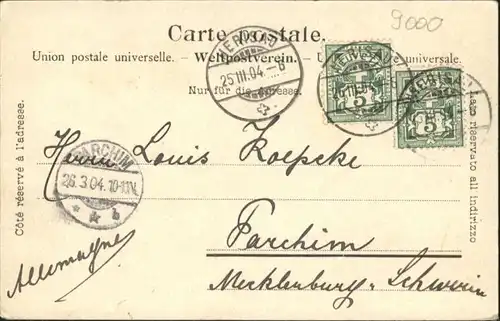 9000
Carte postale.
Union postale universelle. – Weltpostverein. – U universale.
Nur für die Adresse.
HERISAU
25.III.04.
HERISAU
HERISAU
5
5
Côté réservé à l'adresse.
Lato riservato all indirizzo
Herrn Louis Koepcke
PARCHIM
26.3.04.10-11V.
* * b
Parchim
Mecklenburg-Schwerin
Allemagne